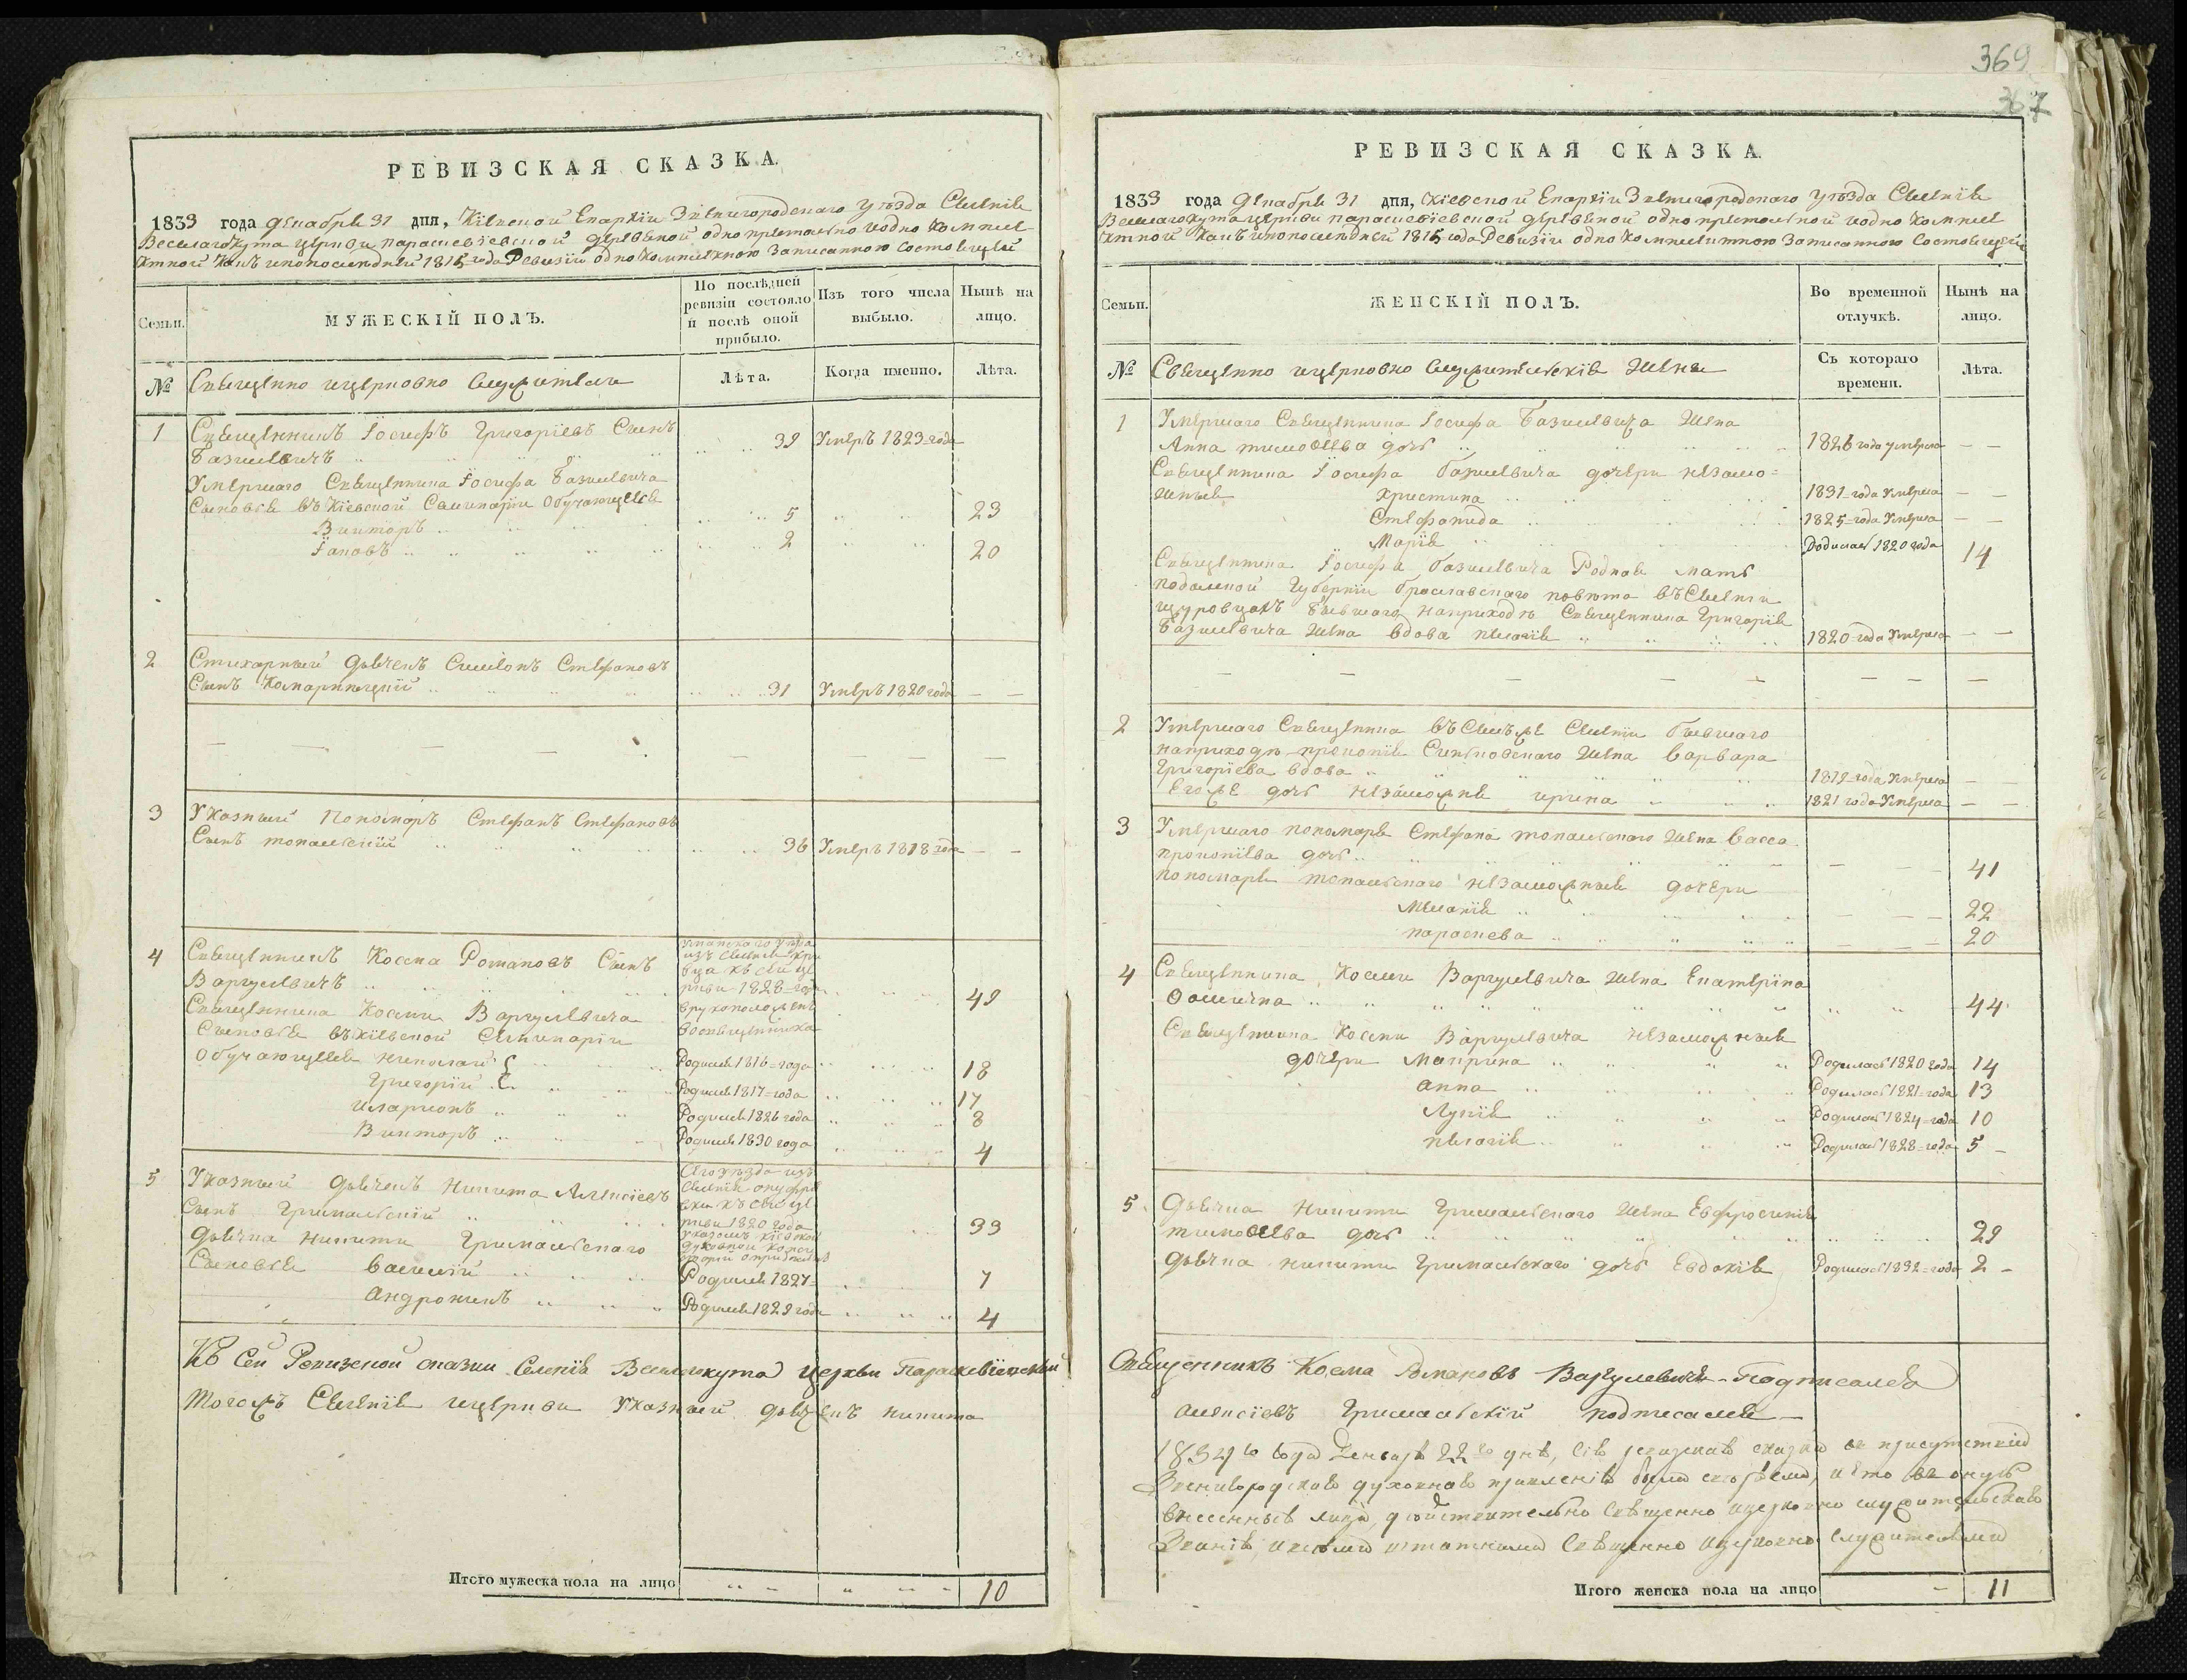 369
367
РЕВИЗСКАЯ СКАЗКА.
1833 года Декабря 31 дня, Кіевской Епархіи Звенигородскаго уѣзда Селенія
Веселагокута церкви параскевіевской деревяной однопрестольно иодно комплек
ктной какъ инопослѣдней 1815 года Ревизіи однокомплектною Записанною Состоящей
Семьи.
МУЖЕСКІЙ ПОЛЪ.
По послѣдней
ревизіи состояло
и послѣ оной
прибыло.
Изъ того числа
выбыло.
Нынѣ на
лицо.
№
Священно ицерковно служители
Лѣта.
Когда именно.
Лѣта.
1 Священникъ Іосифъ Григоріевъ Сынъ
Базилевичъ 39 Умеръ 1823 года
Умершаго Священника Іосифа Базилевича
Сыновья въ Кіевской Семинаріи Обучающіеся
Викторъ 5 23
Іаковъ 2 20
2 Стихарный дьячекъ Симеонъ Стефановъ
Сынъ Комарницкій 31 Умеръ 1820 года — —
3 Указный Пономарь Стефанъ Стефановъ
Сынъ топальскій 36 Умеръ 1818 года — —
4 Священникъ Косма Романовъ Сынъ
Варгулевичъ 49
Уманскаго уѣзда
изъ Селенія
къ сей це
ркви 1828 года
врукоположенъ
восвященника
Священника Космы Варгулевича
Сыновья въ кіевской Семинаріи
Обучающіеся николай Родился 1816 года 18
Григорій Родился 1817 года 17
иларіонъ Родился 1826 года 8
Викторъ Родился 1830 года 4
5 Указный дьячекъ Никита Алексіевъ
Сынъ Гримальскій 33
Сегоуѣзда изъ
Селенія
къ сей це
ркви 1820 года
указомъ кіевской
духовной конси
сторіи
дьячка никиты Гримальскаго
Сыновья василій Родился 1827 7
Андроникъ Родился 1829 года 4
Къ Сей Ревизской сказки Селенія Веселагокута церкви Параскевіевской
тогожъ Селенія ицеркви Указный дьячекъ никита
Итого мужеска пола на лицо 10
РЕВИЗСКАЯ СКАЗКА.
1833 года Декабря 31 дня, Кіевской Епархіи Звенигородскаго уѣзда Селенія
Веселагокута церкви параскевіевской деревяной однопрестольной иодно комплек
ктной какъ инопослѣдней 1815 года Ревизіи однокомплектною Записанною Состоящей
Семьи.
ЖЕНСКІЙ ПОЛЪ.
Во временной
отлучкѣ.
Нынѣ на
лицо.
№
Священно ицерковно служительскія жены
Съ котораго
времени.
Лѣта.
1 Умершаго Священника Іосифа Базилевича жена
Анна тимофеева дочь 1826 года умерла — —
Священника Іосифа базилевича дочери незамо=
жныя Христина 1831 года Умерла — —
Стефанида 1825 года Умерла — —
Марія Родилась 1820 года 14
Священника Іосифа базилевича Родная мать
подольской Губерніи браславскаго повѣта въ Селеніи
щуровцахъ бывшаго наприходѣ Священника Григорія
базилевича жена вдова пелагія 1820 года Умерла — —
2 Умершаго Священника Селеніи бывшаго
наприходѣ прокопія жена варвара
Григоріева вдова 1819 года Умерла — —
Егоже дочь незаможня ирина 1821 года Умерла — —
3 Умершаго пономаря Стефана топальскаго жена васса
прокопіева дочь 41
пономаря топальскаго незаможныя дочери
Меланія 22
параскева 20
4 Священника Космы Варгулевича жена Екатеріна
Фомична 44
Священника Космы Варгулевича незаможныя
дочери Макрина Родилась 1820 года 14
анна Родилась 1821 года 13
Лукія Родилась 1824 года 10
пелагія Родилась 1828 года 5 —
5. Дьячка Никиты Гримальскаго жена Евфросинія
тимофеева дочь 29
дьячка никиты Гримальскаго дочь Евдокія Родилась 1832 года 2 —
Священникъ Косма Романовъ Варгулевичъ Подписался
алексіевъ Гримальскій подписался —
1834го года Генваря 22го дня, сія ревизская сказка въ присутствіи
Звенигородскаго духовнаго правленія была свѣряема, и что въ оную
внесенныя лица, дѣйствительно Священно ицерковно служительскаго
Званія, и штатными Священно ицерковно служителями
Итого женска пола на лицо — 11